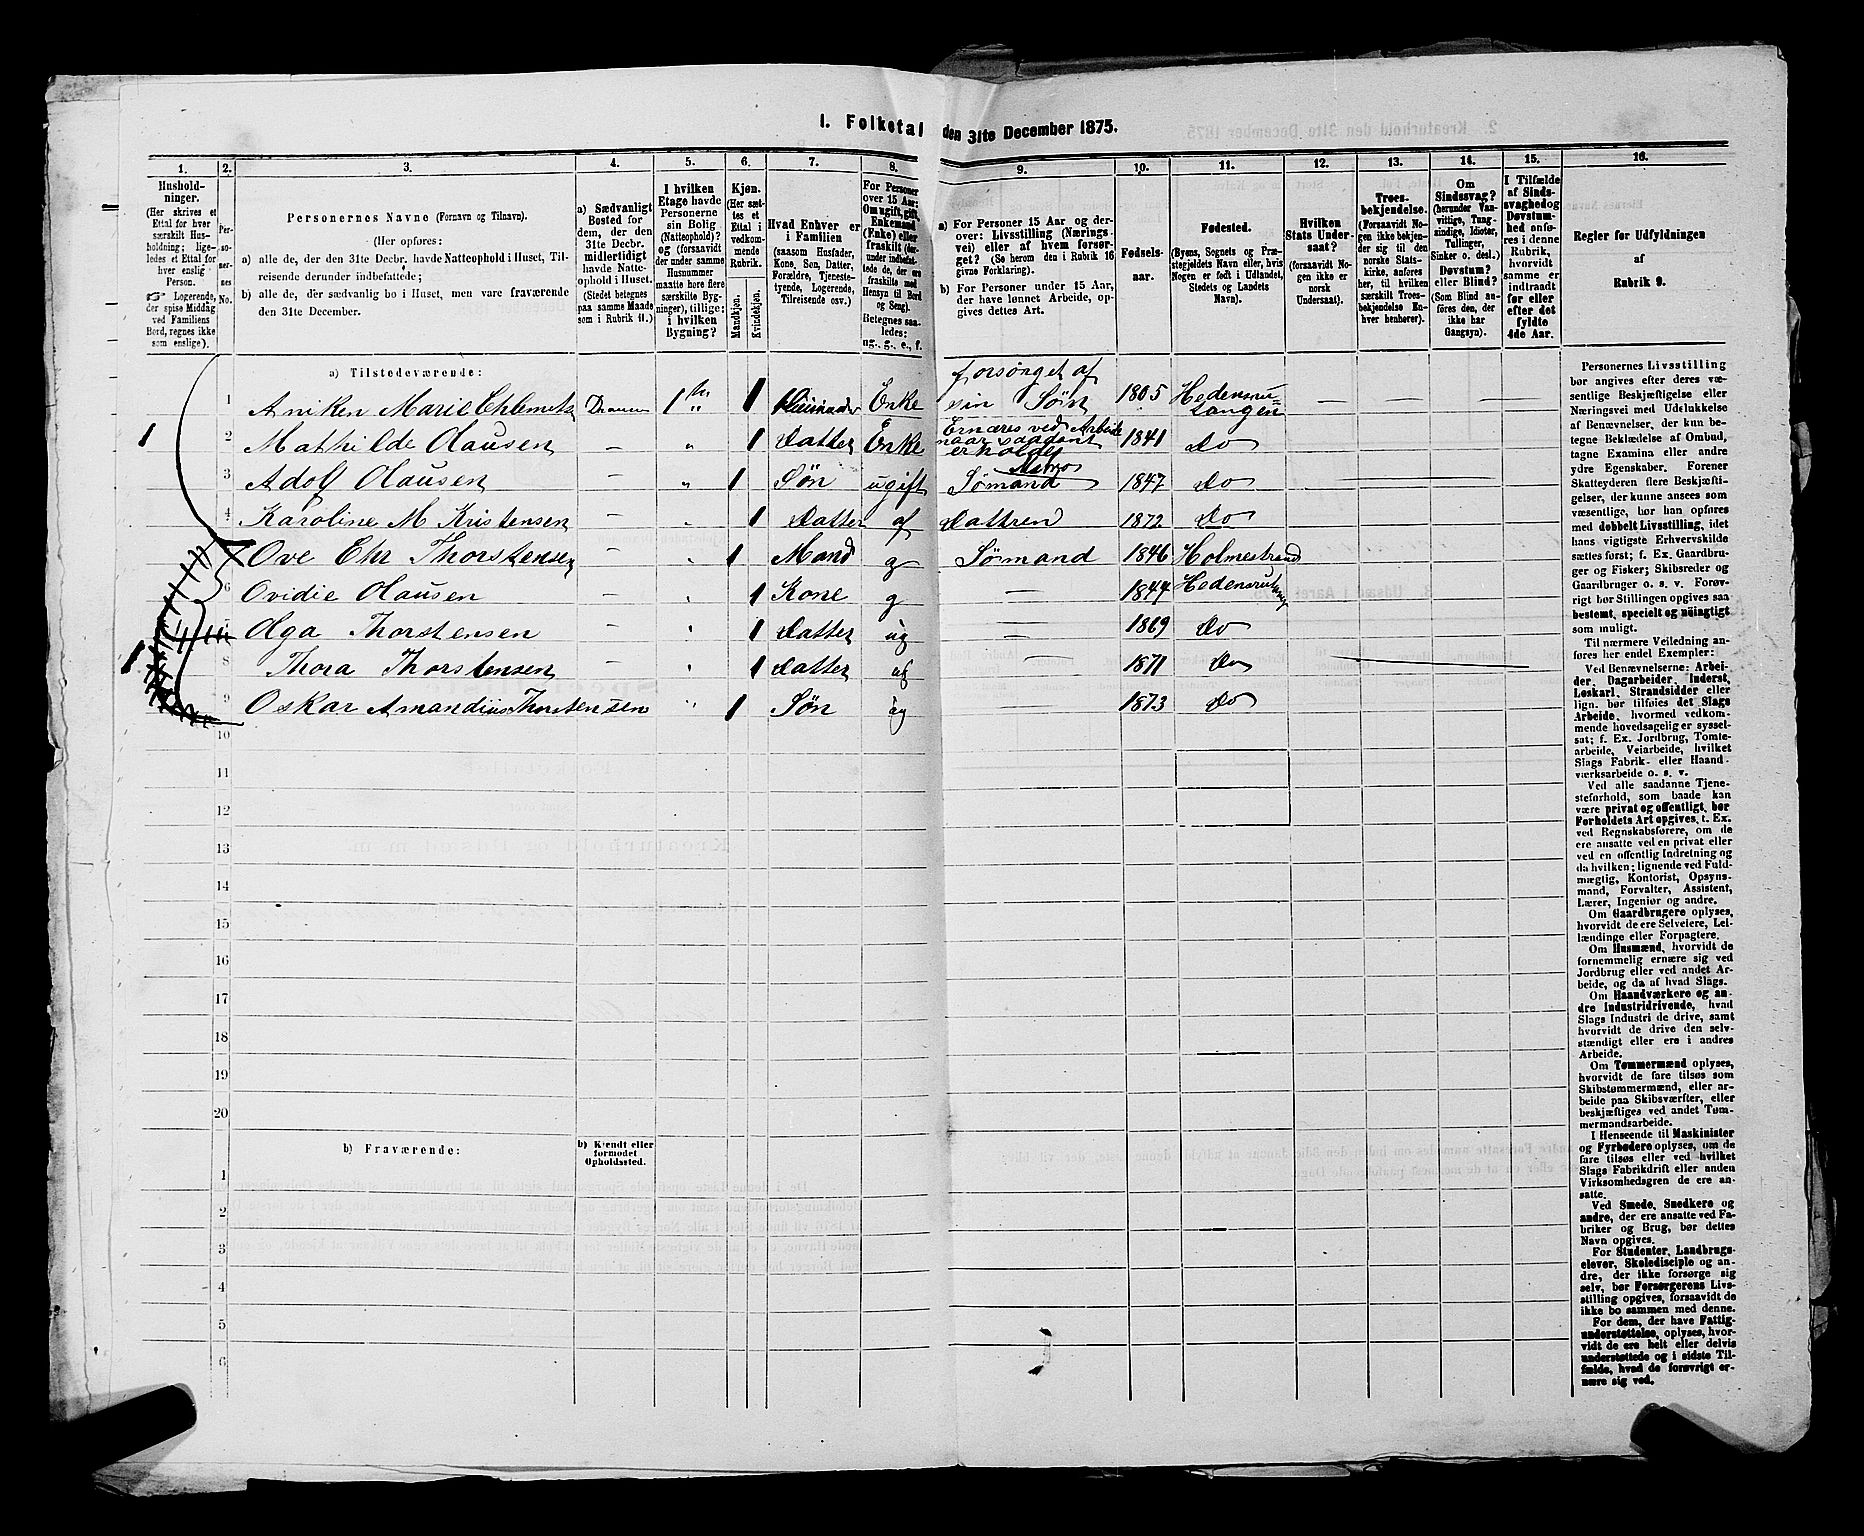 1. Folketal den 31te December 1875.
1. 2. 3. 4. 5. 6. 7. 8. 9. 10. 11. 12. 13. 14. 15. 16.
Hushold-
ninger.
(Her skrives et
Ettal for hver
særskilt Hus-
holdning; lige-
ledes et Ettal for
hver enslig
Person.
☞ Logerende,
der spise Middag
ved Familiens
Bord, regnes ikke
som enslige).
Per-
so-
ner-
nes
No.
Personernes Navne (Fornavn og Tilnavn).
(Her opføres:
a) alle de, der den 31te Decbr. havde Natteophold i Huset, Til-
reisende derunder indbefattede;
b) alle de, der sædvanlig bo i Huset, men vare fraværende
den 31te December.
a) Sædvanligt
Bosted for
dem, der den
31te Decbr.
midlertidigt
havde Natte-
ophold i Huset.
(Stedet betegnes
paa samme Maade
som i Rubrik 11.)
I hvilken
Etage havde
Personerne
sin Bolig
(Natteophold)?
og (forsaavidt
der under samme
Husnummer
maatte høre flere
særskilte Byg-
ninger), tillige:
i hvilken
Bygning?
Kjøn.
(Her sæt-
tes et
Ettal i
vedkom-
mende
Rubrik.
Mandkjøn.
Kvindekjøn.
Hvad Enhver er
i Familien
(saasom Husfader,
Kone, Søn, Datter,
Forældre, Tjeneste-
tyende, Logerende,
Tilreisende osv.)
For
Personer
over 15 Aar:
Om ugift, gift,
Enkemand
(Enke) eller
fraskilt (der-
under indbefat-
tede de, der ere
fraskilte med
Hensyn til Bord
og Seng).
Betegnes saa-
ledes:
ug., g., e., f.
a) For Personer 15 Aar og der-
over: Livsstilling (Nærings-
vei) eller af hvem forsør-
get? (Se herom den i Rubrik 16
givne Forklaring).
b) For Personer under 15 Aar,
der have lønnet Arbeide, op-
gives dettes Art.
Fødsels-
aar.
Fødested.
(Byens, Sognets og Præ-
stegjeldets Navn eller, hvis
Nogen er født i Udlandet,
Stedets og Landets
Navn).
Hvilken
Stats Under-
saat?
(forsaavidt No-
gen ikke er
norsk
Undersaat).
Troes-
bekjendelse.
(Forsaavidt No-
gen ikke bekjen-
der sig til den
norske Stats-
kirke, anføres
her, til hvilken
særskilt Troes-
bekjendelse En-
hver henhører).
Om
Sindssvag?
(herunder Van-
vittige, Tung-
sindige, Idioter,
Tullinger,
Sinker o. desl.)
Døvstum?
eller Blind?
(Som Blind an-
føres den, der
ikke har
Gangsyn).
I Tilfælde
af Sinds-
svaghed og
Døvstum-
hed anføres
i denne
Rubrik,
hvorvidt
samme er
indtraadt
før eller
efter det
fyldte
4de Aar.
Regler for Udfyldningen
af
Rubrik 9.
a) Tilstedeværende:
1 Aniken Marie Drammen 1 1 Enke forsørget af sin Søn 1805
1 2 Mathilde Olausen — „ 1 Datter Enke Ernæres ved Arbeide naar saadant erholdes 1841 Do
3 Adolf Olausen — „ 1 Søn ugift Sømand 1847 Do
4 Karoline M Kristensen — „ 1 Datter af Dattren 1872 Do
Ove Chr Thorstensen — „ 1 Mand g Sømand 1846 Holmestrand
6 Ovidie Olausen — „ 1 Kone g — 1847
7 Olga Thorstensen — „ 1 Datter ug — 1869 Do
8 Thora Thorstensen — „ 1 Datter ug — 1871 Do
9 Oskar Amandius Thorstensen „ 1 Søn ug — 1873 Do
10
11
12
13
14
15
16
17
18
19
20
b) Fraværende:
b) Kjendt eller
formodet
Opholdssted.
1
2
3
4
5
6
Personernes Livsstilling
bør angives efter deres væ-
sentlige Beskjæftigelse eller
Næringsvei med Udelukkelse
af Benævnelser, der kun be-
tegne Beklædelse af Ombud,
tagne Examina eller andre
ydre Egenskaber. Forener
Skatteyderen flere Beskjæfti-
gelser, der kunne ansees som
væsentlige, bør han opføres
med dobbelt Livsstilling, idet
hans vigtigste Erhvervskilde
sættes først; f. Ex. Gaardbru-
ger og Fisker; Skibsreder og
Gaardbruger o. s. v. Forøv-
rigt bør Stillingen opgives saa
bestemt, specielt og nøiagtigt
som muligt.
Til nærmere Veiledning an-
føres her endel Exempler:
Ved Benævnelserne: Arbei-
der, Dagarbeider, Inderst,
Løskarl, Strandsidder eller
lign. bør tilføies det Slags
Arbeide, hvormed vedkom-
mende hovedsagelig er syssel-
sat; f. Ex. Jordbrug, Tomte-
arbeide, Veiarbeide, hvilket
Slags Fabrik- eller Haand-
værksarbeide o. s. v.
Ved alle saadanne Tjene-
steforhold, som baade kan
være privat og offentligt, bør
Forholdets Art opgives, t. Ex.
ved Regnskabsførere, om de
ere ansatte ved en privat eller
ved en offentlig Indretning og
da hvilken; lignende ved Fuld-
mægtig, Kontorist, Opsyns-
mand, Forvalter, Assistent,
Lærer, Ingeniør og andre.
Om Gaardbrugere oplyses,
hvorvidt de ere Selveiere, Lei-
lændinge eller Forpagtere.
Om Husmænd, hvorvidt de
fornemmelig ernære sig ved
Jordbrug eller ved andet Ar-
beide, og da af hvad Slags.
Om Haandværkere og an-
dre Industridrivende, hvad
Slags Industri de drive, samt
hvorvidt de drive den selv-
stændigt eller ere i andres
Arbeide.
Om Tømmermænd oplyses,
hvorvidt de fare tilsøs som
Skibstømmermænd, eller ar-
beide paa Skibsværfter, eller
beskjæftiges ved andet Tøm-
mermandsarbeide.
I Henseende til Maskinister
og Fyrbødere oplyses, om de
fare tilsøs eller ved hvilket
Slags Fabrikdrift eller anden
Virksomhedsgren de ere an-
satte.
Ved Smede, Snedkere og
andre, der ere ansatte ved Fa-
briker og Brug, bør dettes
Navn opgives.
For Studenter, Landbrugs-
elever, Skoledisciple og an-
dre, der ikke forsørge sig
selv, bør Forsørgerens Livs-
stilling opgives, forsaavidt de
ikke bo sammen med denne.
For dem, der have Fattig-
understøttelse, oplyses, hvor-
vidt de ere helt eller delvis
understøttede og i sidste Til-
fælde, hvad de forøvrigt er-
nære sig ved.